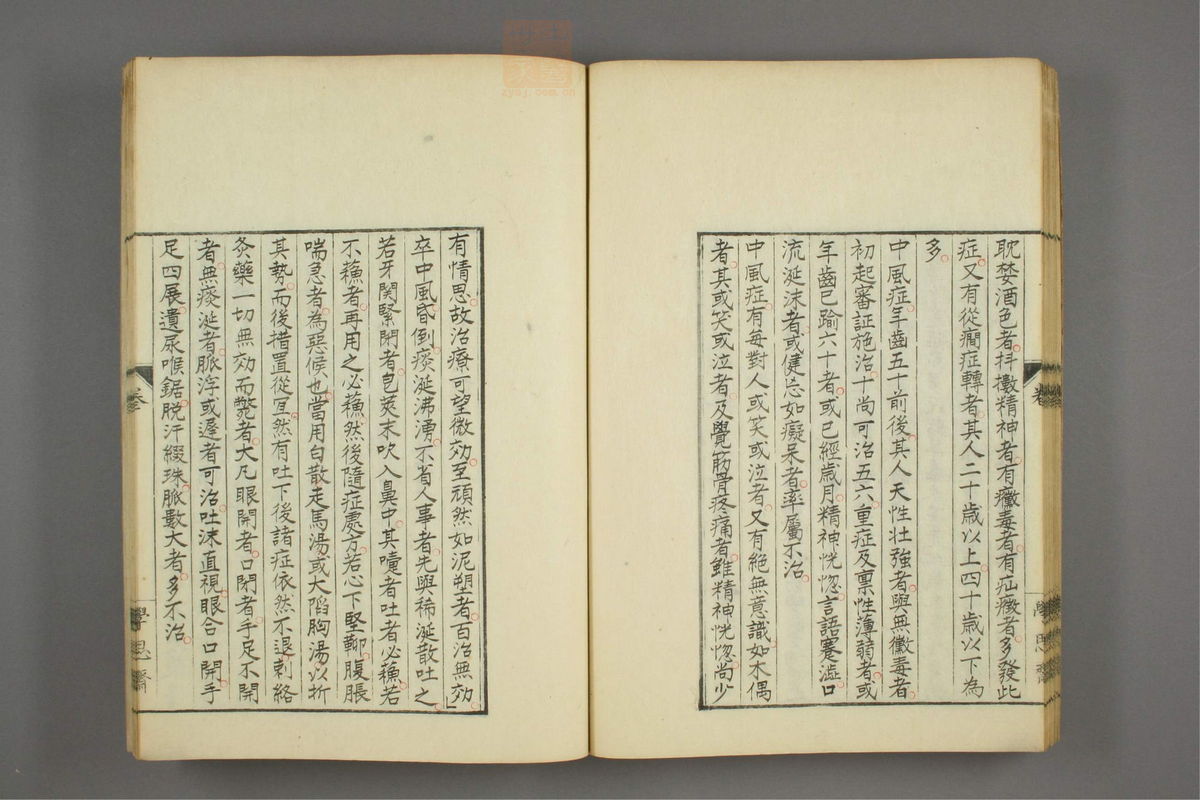 耽婪酒色者抖擻精神者有黴毒者有疝癥者多發此
症又有從癇症轉者其人二十歲以上四十歲以下為
多
中風症年齒五十前後其人天性壯強者與無黴毒者
初起審証施治十尚可治五六重症及禀性薄弱者或
年齒已踰六十者或已經歲月精神恍惚言語蹇澁口
流涎沫者或健忘如癡呆者率屬不治
中風症有每對人或笑或泣者又有絕無意識如木偶
者其或笑或泣者及覺筋骨疼痛者雖精神恍惚尚少
有情思故治療可望微効至頑然如泥塑者百治無効
卒中風昏倒痰涎沸湧不省人事者先與稀涎散吐之
若牙関緊閉者皀莢末吹入鼻中其嚏者吐者必蘓若
不蘓者再用之必蘓然後隨症處方若心下堅鞕腹脹
喘急者為惡候也當用白散走馬湯或大陷胸湯以折
其勢而後措置從宜然有吐下後諸症依然不退刺絡
灸藥一切無効而斃者大凡眼開者口閉者手足不開
者無痰涎者脈浮或遲者可治吐沫直視眼合口開手
足四展遺尿喉鋸脫汗綴珠脈數大者多不治
卷
卷
學思齋
學思齋
zysj.com.cn